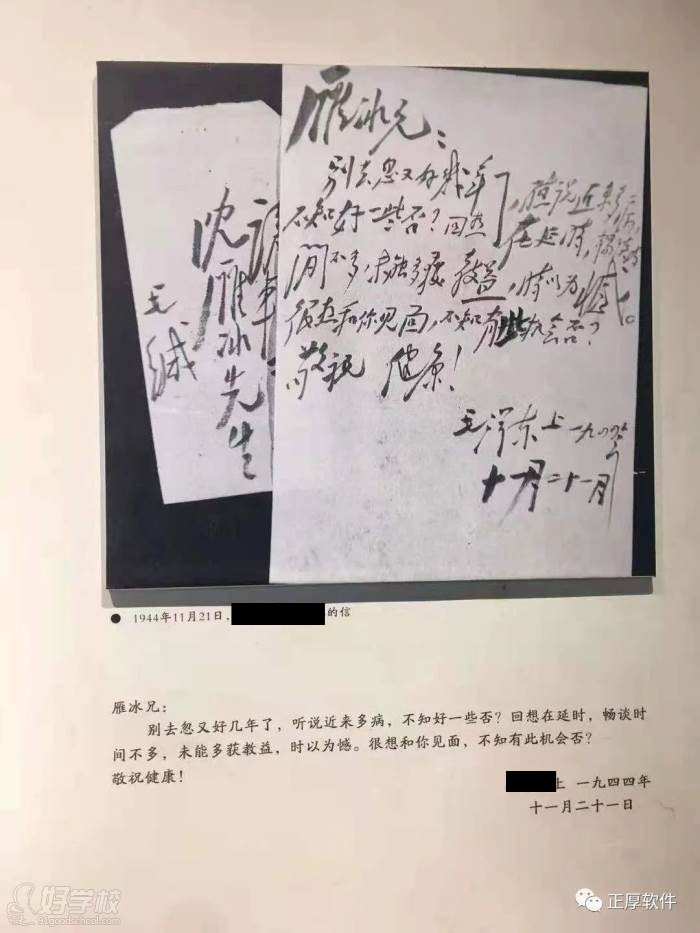 沈雁冰先生
毛缄
雁冰兄：
别去忽又好几年了，听说近来多病，
不知好一些否？回想在延时，畅谈时
间不多，未能多获教益，时以为憾。
很想和你见面，不知有此机会否？
敬祝 健康！
毛泽东上 一九四四年
十一月二十一日
● 1944年11月21日，
的信
雁冰兄：
别去忽又好几年了，听说近来多病，不知好一些否？回想在延时，畅谈时
间不多，未能多获教益，时以为憾。很想和你见面，不知有此机会否？
敬祝健康！
上 一九四四年
十一月二十一日
好学校
91goodschool.com
正厚软件